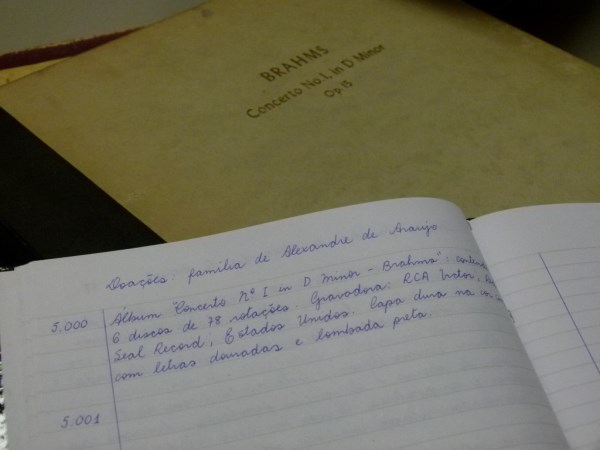 BRAHMS
Concerto No.1, in D Minor
Op.15
Doações: família de Alexandre de Araujo
5.000 Album "Concerto Nº I en D Minor - Brahms":
6 discos de 78 rotações. Gravadora: RCA Victor,
Seal Record, Estados Unidos. Capa dura na
com letras douradas e lombada preta.
5.001